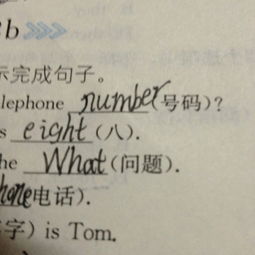 b
示完成句子。
lephone number(号码)?
s eight(八).
he What(问题).
hone电话).
字) is Tom.